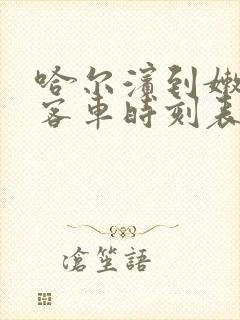 哈尔滨到嫩
客车时刻表
滄笙語